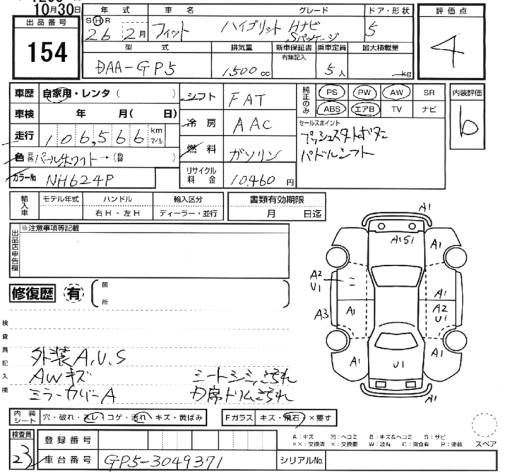 10月30日
出品番号
154
年式 車名 グレード ドア・形状
S H R
26年 2月 フィット ハイブリット Hナビ Sパッケージ 5
型式 排気量 新車保証書 乗車定員 最大積載量
有無記入
DAA-GP5 1500cc 5人 kg
評価点
4
車歴 自家用・レンタ( )
車検 年 月( 日)
走行 106,566 km マイル
色 パールホワイト→(替)
カラーNo NH624P
シフト FAT
冷房 AAC
燃料 ガソリン
リサイクル料金 10,460円
純正のみ
PS PW AW SR
ABS エアB TV ナビ
セールスポイント
プッシュスタートボタン
パドルシフト
内装評価
b
輸入車
モデル年式 ハンドル 輸入区分
右H・左H ディーラー・並行
書類有効期限
月 日迄
出品店申告欄
※注意事項等記載
修復歴 有
箇所
検査員記入欄
外装A,U,S
AWキズ
ミラーカバーA
シートシミ、よごれ
内張トリムよごれ
A1
A1S1
A1
A1
A2
U1
A3
A1
A2
U1
A1
A1
U1
内装シート 穴・破れ・スレ・コゲ・汚れ・キズ・黄ばみ
Fガラス キズ・飛石・X要す
検査員
23
登録番号
車台番号 GP5-3049371
シリアルNo.
A:キズ U:ヘコミ B:キズ&ヘコミ S:サビ
XX:交換済 X:要交換 W:波有 C:腐食有 P:塗装
スペア